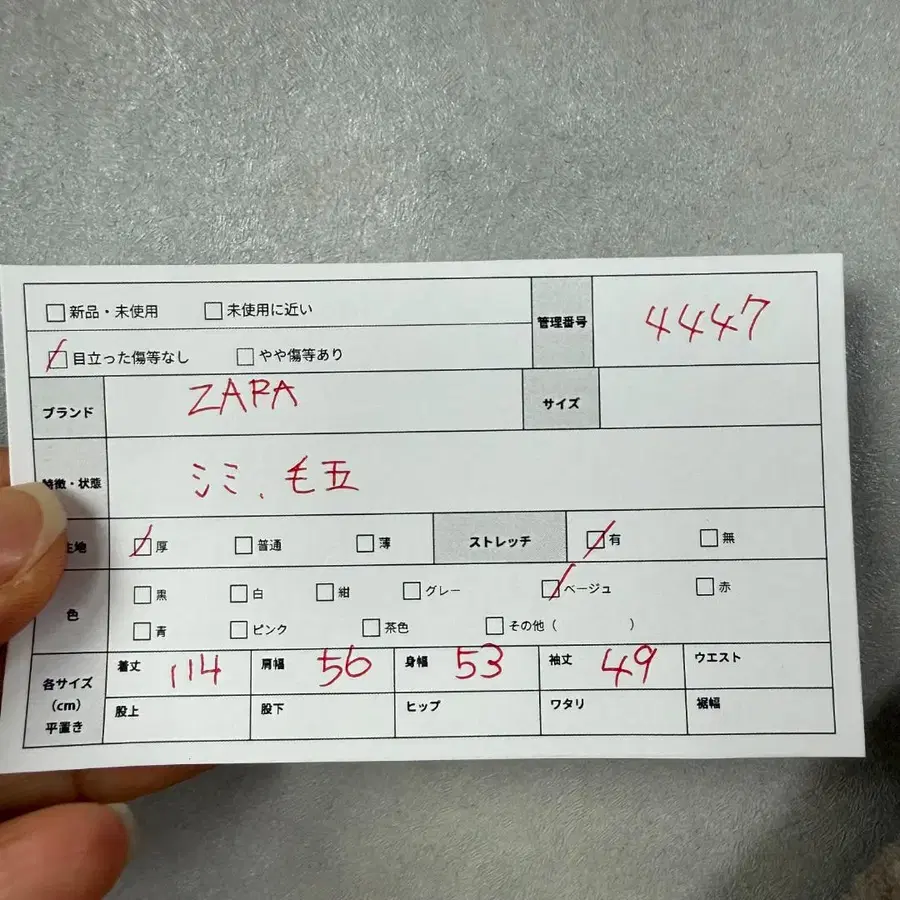 □新品・未使用 □未使用に近い 管理番号 4447
☑目立った傷等なし □やや傷等あり
ブランド ZARA サイズ
特徴・状態 シミ、毛玉
生地 ☑厚 □普通 □薄 ストレッチ ☑有 □無
色 □黒 □白 □紺 □グレー ☑ベージュ □赤
□青 □ピンク □茶色 □その他（ ）
各サイズ（cm）平置き
着丈 114 肩幅 56 身幅 53 袖丈 49 ウエスト
股上 股下 ヒップ ワタリ 裾幅